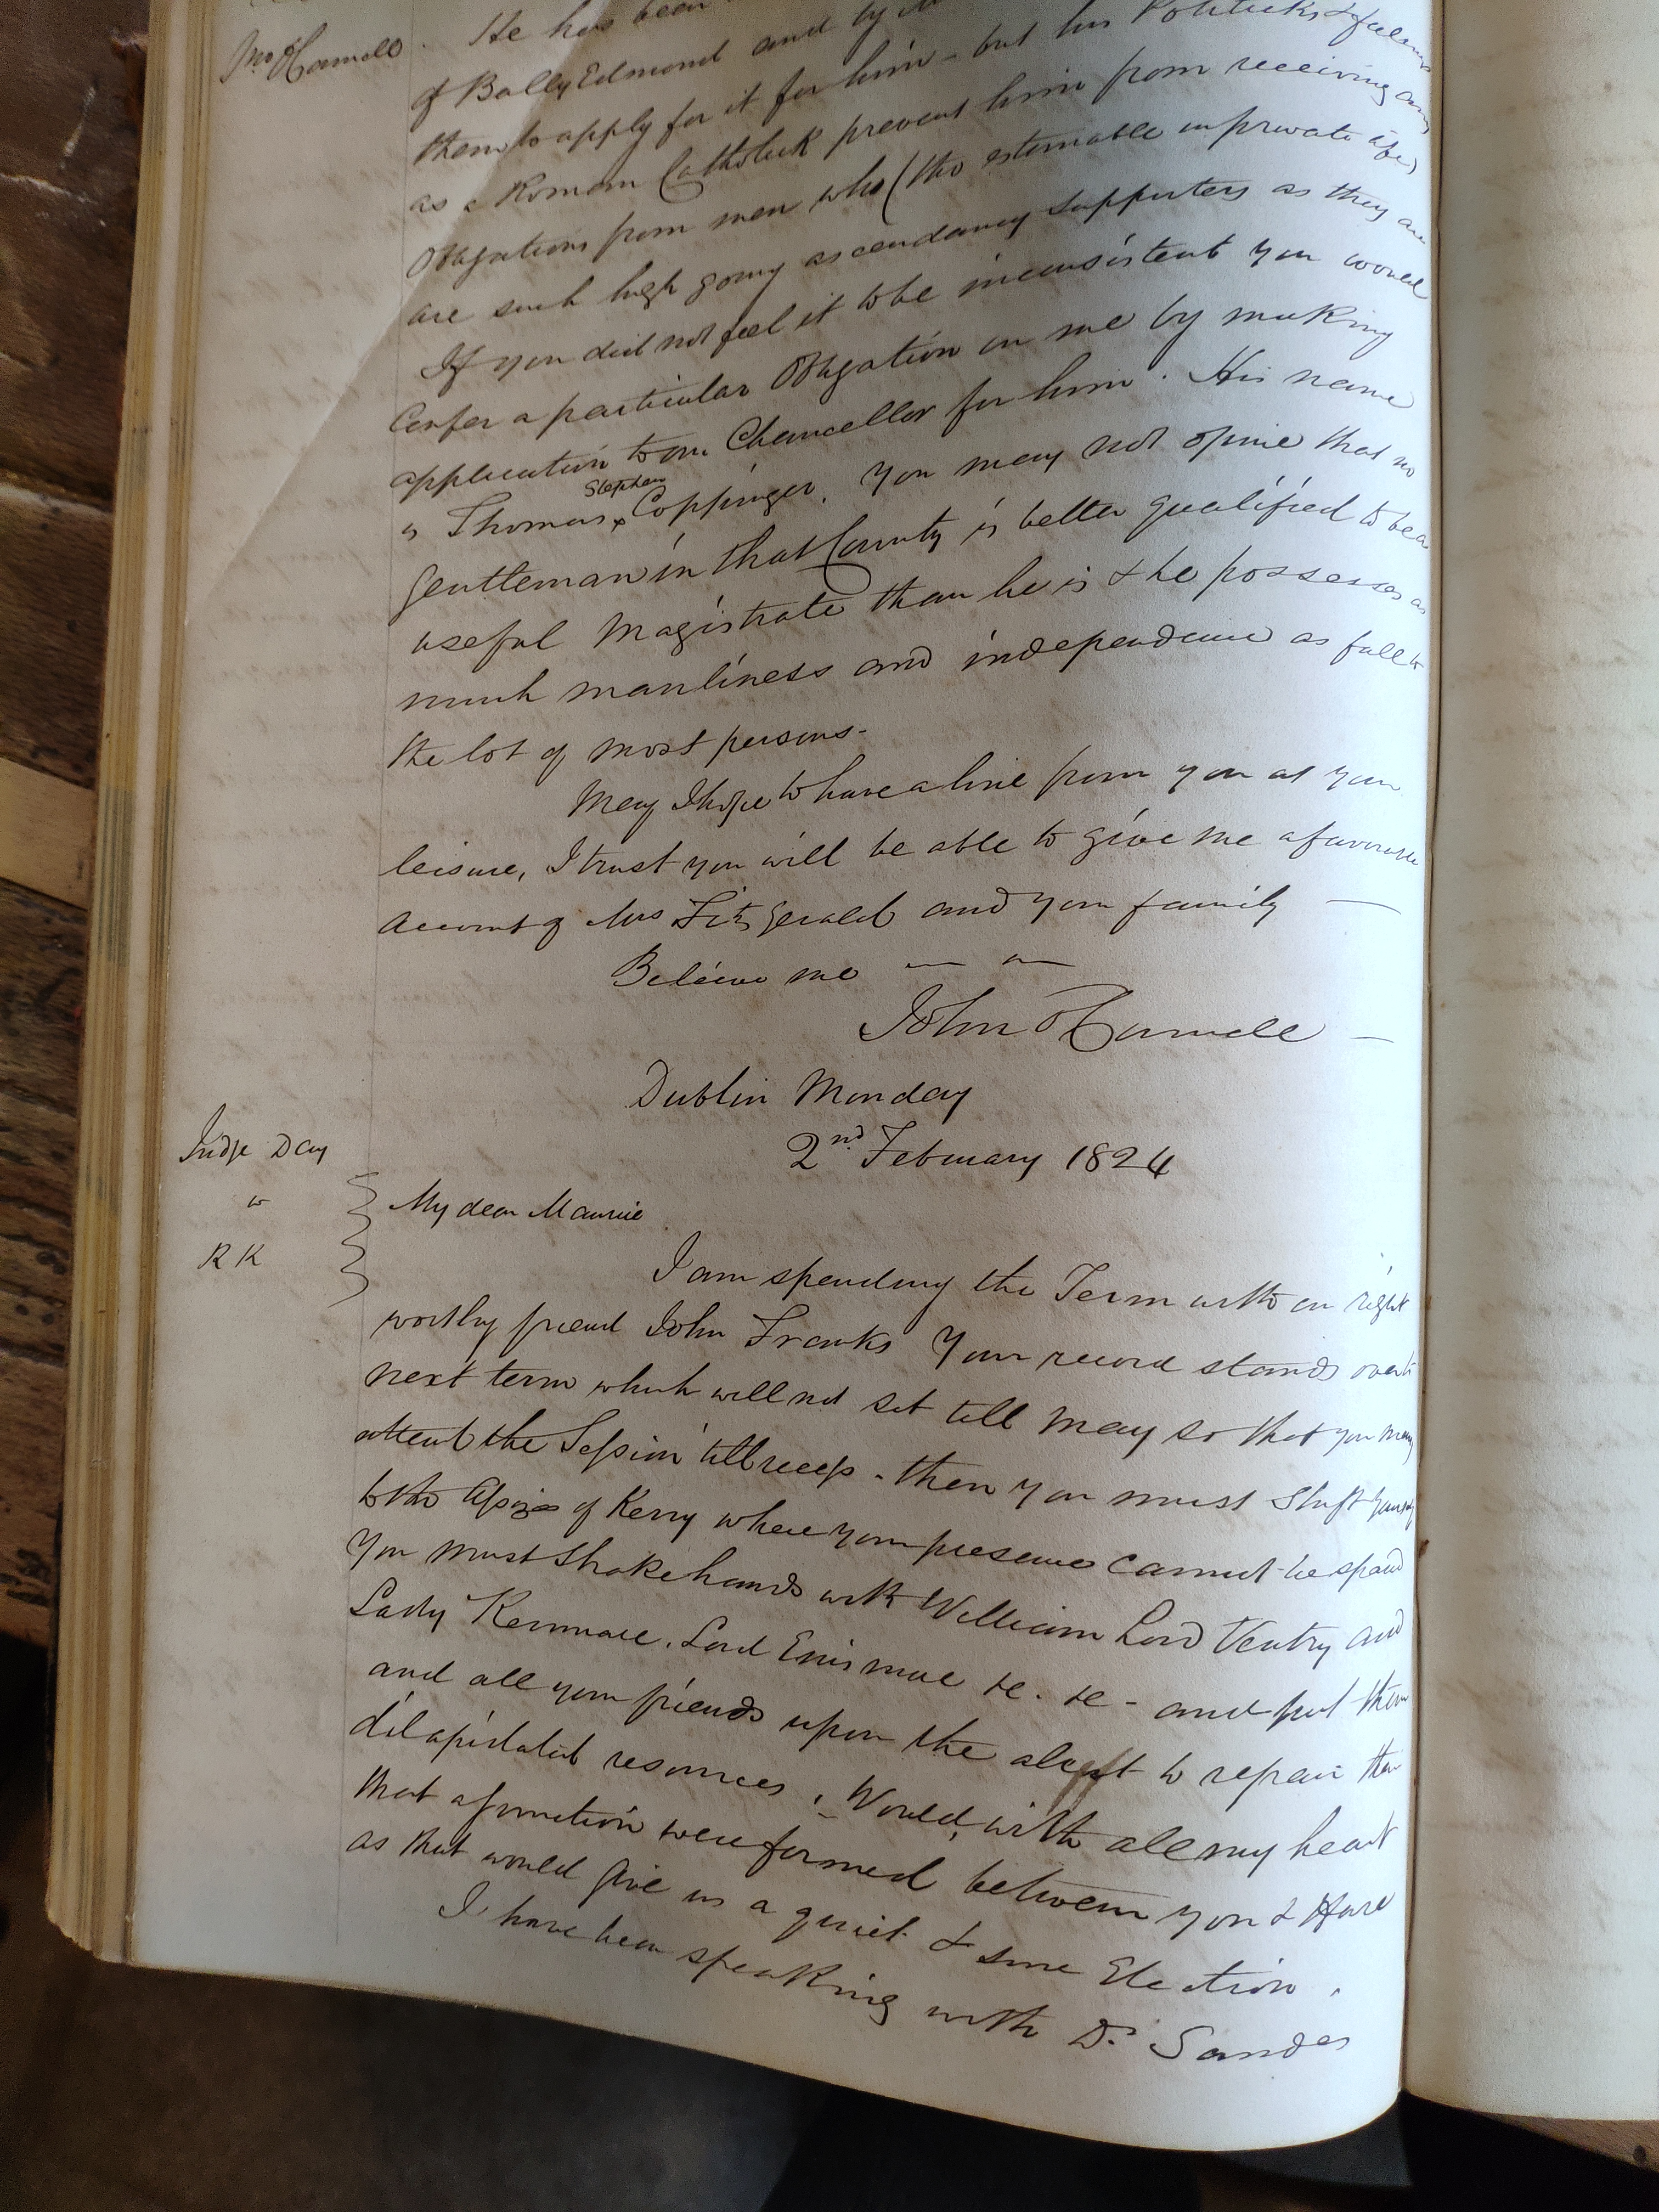 Mr OConnell
He has been
of BallyEdmond and by
them to apply for it for him - but his Politicks & feelings
as a Roman Catholick prevent him from receiving any
Obligations from men who (tho estimable in private life)
are such high going ascendancy supporters as they are
If you did not feel it to be inconsistent you would
Confer a particular Obligation on me by making
application to our Chancellor for him. His name
is Thomas Stephen Coppinger. You may not opine that no
gentleman in that County is better qualified to be a
useful Magistrate than he is & he possesses as
much manliness and independence as fall to
the lot of most persons.
May I hope to have a line from you at your
leisure, I trust you will be able to give me a favourable
account of Mrs FitzGerald and your family
Believe me
John OConnell
Dublin Monday
2nd February 1824
Judge Day
to
RK
My dear Maurice
I am spending the Term with our right
worthy friend John Franks Your record stands over to
next term which will not set till May so that you may
attend the Session till recess - then you must shift yourself
to the Assizes of Kerry where your presence cannot be spared
You must shake hands with William Lord Ventry and
Lady Kenmare, Lord Enismore &c. &c - and put them
and all your friends upon the alert to repair their
dilapidated resources, Would, with all my heart
that a junction were formed between you & Hare
as that would give us a quiet & sure Election.
I have been speaking with Dr. Sandes